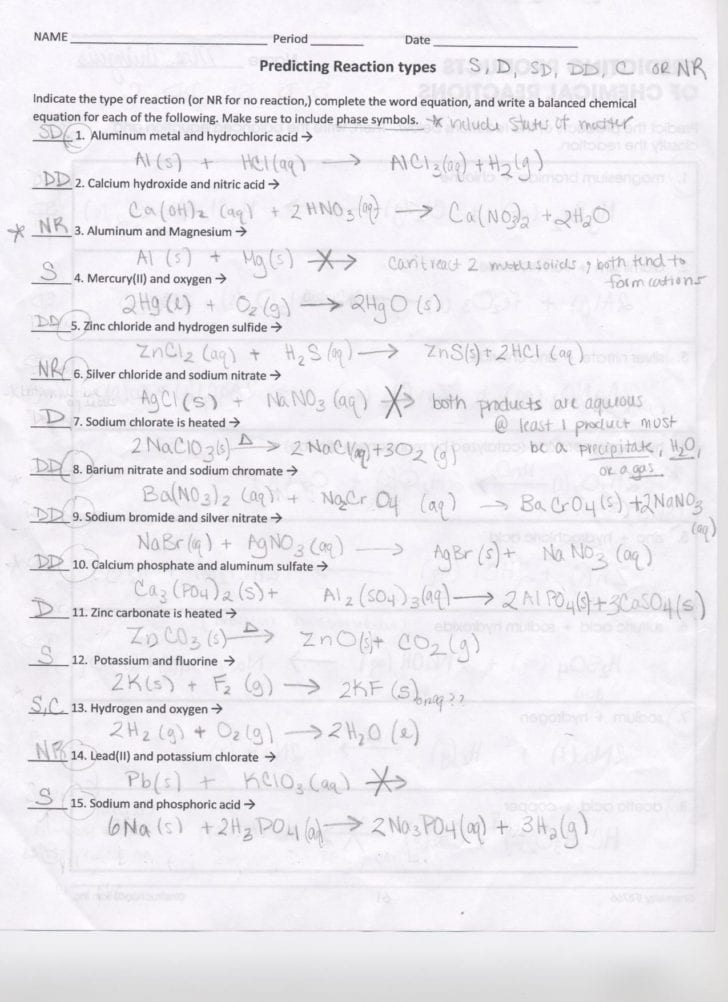 NAME Period Date
Predicting Reaction types S, D, SD, DD, C OR NR
Indicate the type of reaction (or NR for no reaction,) complete the word equation, and write a balanced chemical
equation for each of the following. Make sure to include phase symbols. * include state of matter
SD 1. Aluminum metal and hydrochloric acid →
Al(s) + HCl(aq) → AlCl3(aq) + H2(g)
DD 2. Calcium hydroxide and nitric acid →
Ca(OH)2 (aq) + 2HNO3(aq) → Ca(NO3)2 + 2H2O
* NR 3. Aluminum and Magnesium →
Al (s) + Mg(s) → can't react 2 solids, both tend to
form cations
S 4. Mercury(II) and oxygen →
2Hg(l) + O2(g) → 2HgO (s)
DD 5. Zinc chloride and hydrogen sulfide →
ZnCl2 (aq) + H2S (aq) → ZnS(s) + 2HCl (aq)
NR 6. Silver chloride and sodium nitrate →
AgCl(s) + NaNO3 (aq) → both products are aqueous
@ least 1 product must
D 7. Sodium chlorate is heated →
2NaClO3(s) Δ→ 2NaCl(aq) + 3O2 (g) be a precipitate, H2O,
or a gas
DD 8. Barium nitrate and sodium chromate →
Ba(NO3)2 (aq) + Na2CrO4 (aq) → BaCrO4(s) + 2NaNO3
(aq)
DD 9. Sodium bromide and silver nitrate →
NaBr(aq) + AgNO3 (aq) → AgBr (s) + NaNO3 (aq)
DD 10. Calcium phosphate and aluminum sulfate →
Ca3(PO4)2(s) + Al2(SO4)3(aq) → 2AlPO4(s) + 3CaSO4(s)
D 11. Zinc carbonate is heated →
ZnCO3(s) Δ→ ZnO(s) + CO2(g)
S 12. Potassium and fluorine →
2K(s) + F2 (g) → 2KF (s) or aq??
S,C 13. Hydrogen and oxygen →
2H2(g) + O2(g) → 2H2O (l)
NR 14. Lead(II) and potassium chlorate →
Pb(s) + KClO3(aq) →
S 15. Sodium and phosphoric acid →
6Na(s) + 2H3PO4(aq) → 2Na3PO4(aq) + 3H2(g)